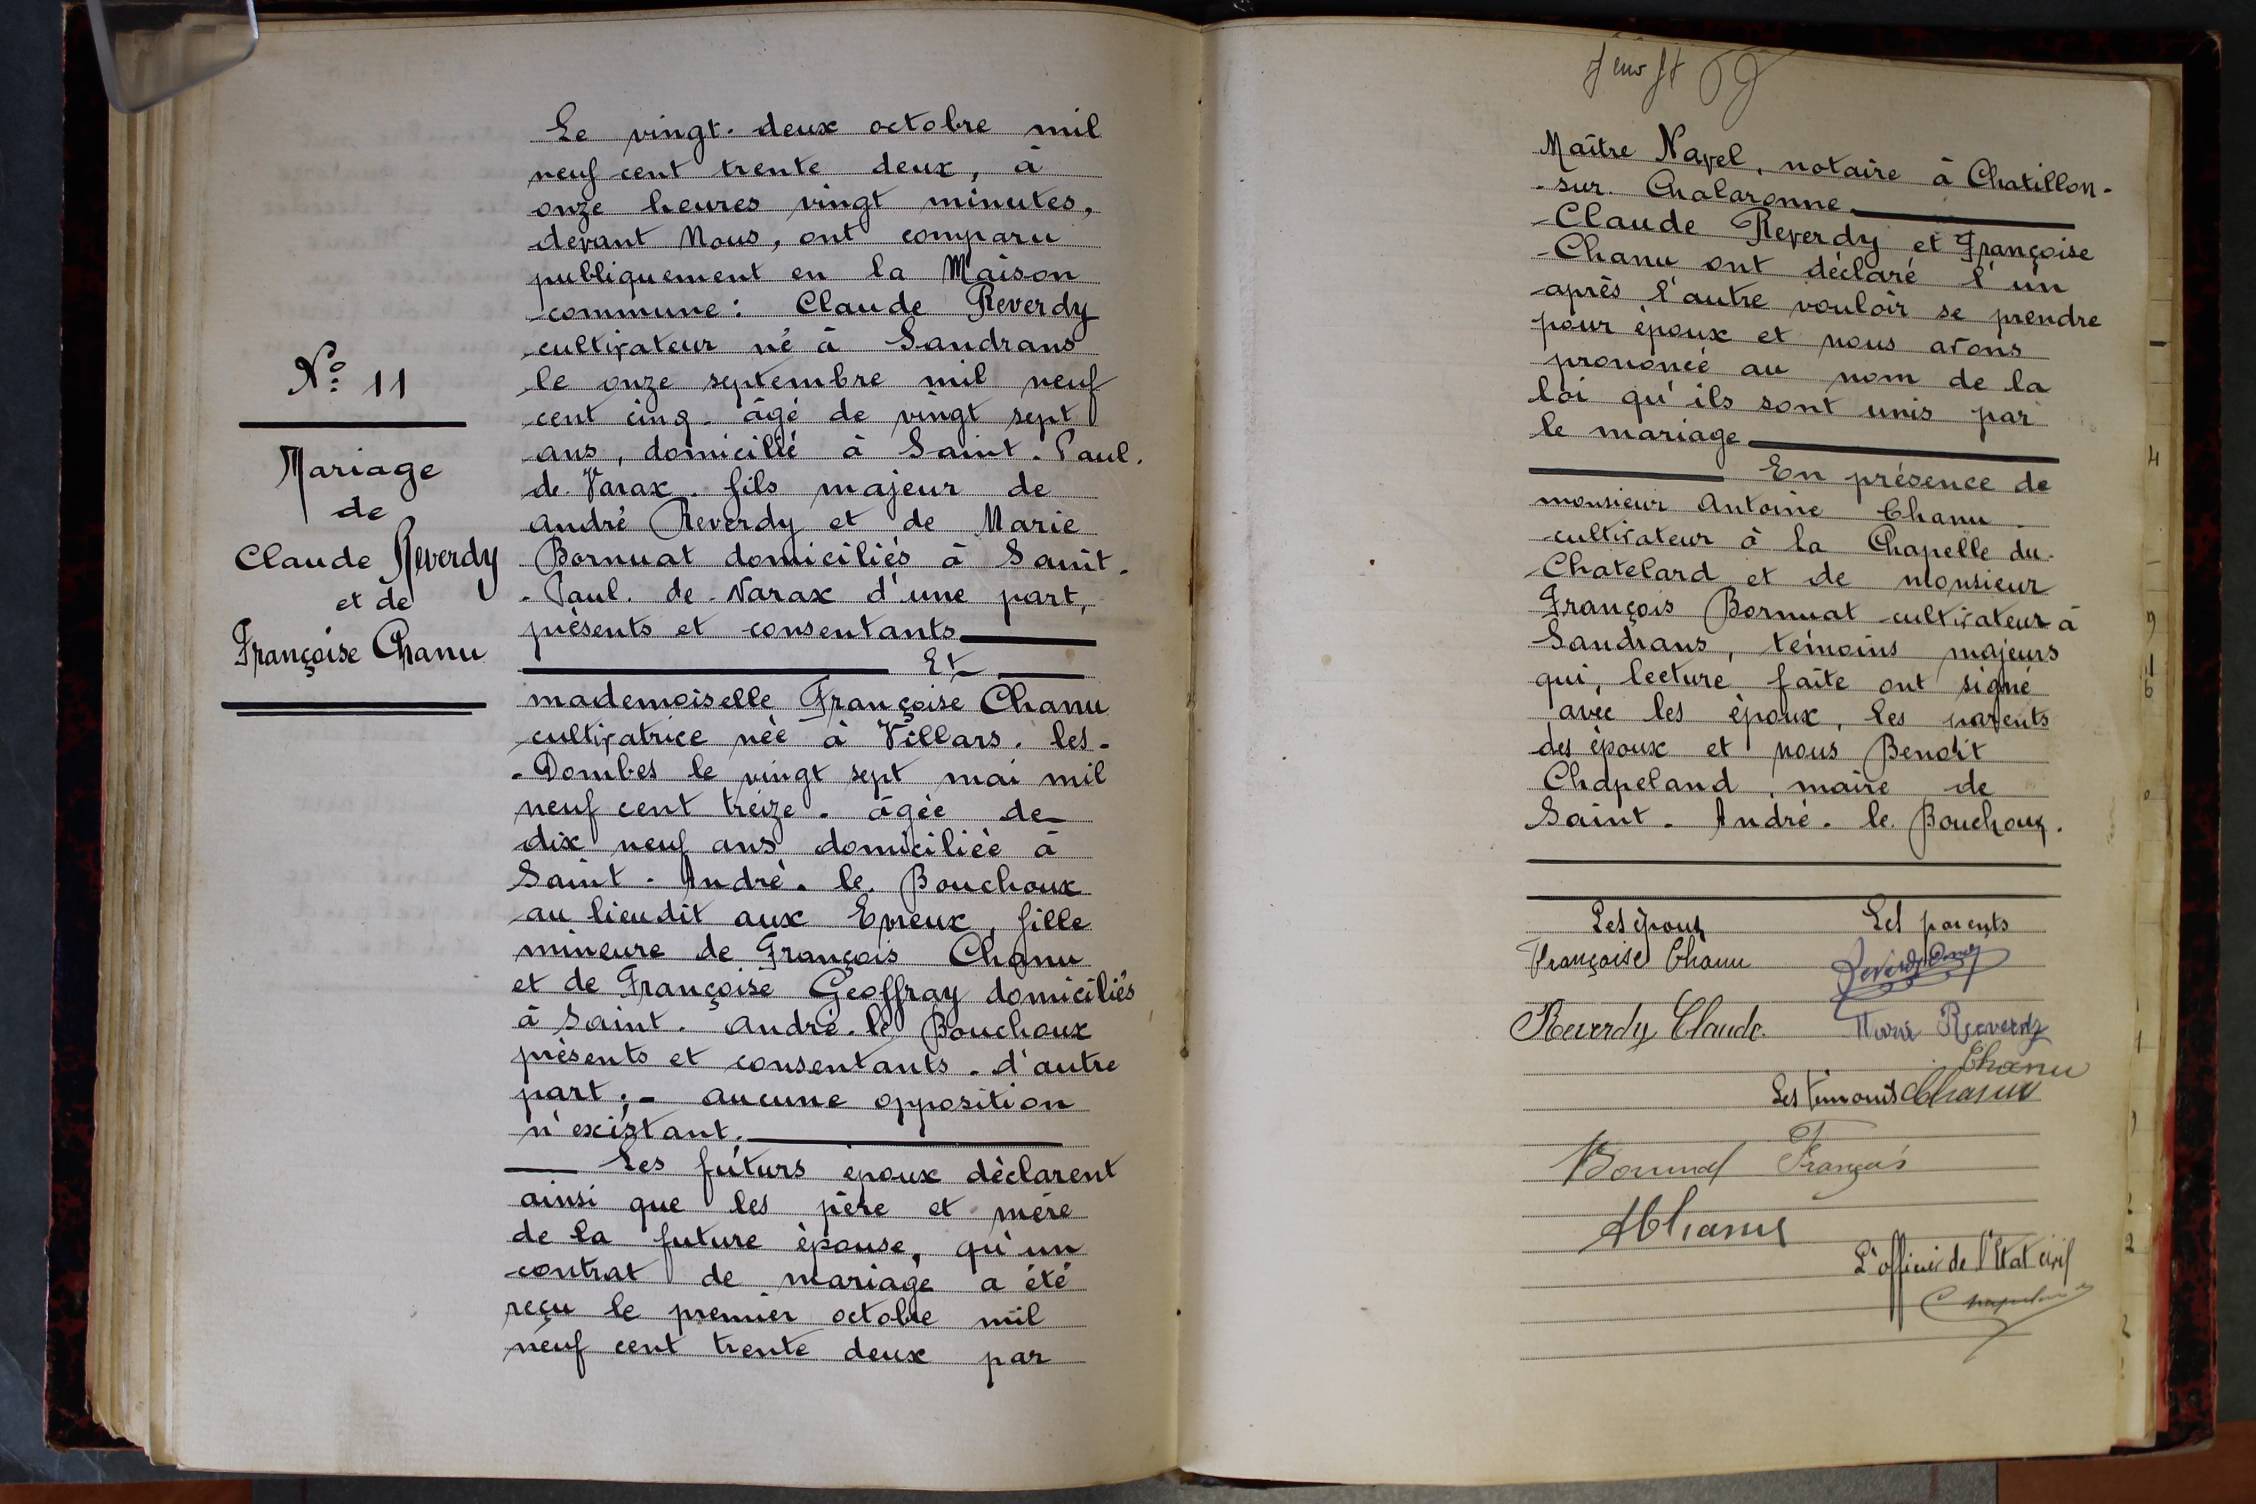 N° 11
Mariage
de
Claude Reverdy
et de
Françoise Chanu
Le vingt-deux octobre mil
neuf cent trente deux, à
onze heures vingt minutes,
devant Nous, ont comparu
publiquement en la Maison
commune : Claude Reverdy
cultivateur né à Sandrans
le onze septembre mil neuf
cent cinq. âgé de vingt sept
ans, domicilié à Saint-Paul.
de. Varax. fils majeur de
André Reverdy et de Marie
Bornuat domiciliés à Saint.
-Paul. de. Varax d'une part,
présents et consentants
Et
mademoiselle Françoise Chanu
cultivatrice née à Villars. les-
-Dombes le vingt sept mai mil
neuf cent treize. âgée de
dix neuf ans domiciliée à
Saint-André. le. Bouchoux
au lieudit aux fille
mineure de François Chanu
et de Françoise Geoffray domiciliés
à Saint-André-le Bouchoux
présents et consentants. d'autre
part ;- aucune opposition
n'existant.
Les futurs époux déclarent
ainsi que les père et mère
de la future épouse, qu'un
contrat de mariage a été
reçu le premier octobre mil
neuf cent trente deux par
Maître Navel, notaire à Chatillon-
-sur. Chalaronne.
Claude Reverdy et Françoise
Chanu ont déclaré l'un
après l'autre vouloir se prendre
pour époux et nous avons
prononcé au nom de la
loi qu'ils sont unis par
le mariage
En présence de
monsieur Antoine Chanu.
cultivateur à la Chapelle du.
Chatelard et de monsieur
François Bornuat cultivateur à
Sandrans, témoins majeurs
qui, lecture faite ont signé
avec les époux, les parents
des époux et nous Benoît
Chapeland, maire de
Saint-André-le Bouchoux.
Les époux Les parents
Françoise Chanu Reverdy
Reverdy Claude. Marie Reverdy
Chanu
Les témoins Chanu
Bornuat François
AChanu
L'officier de l'Etat civil
Chapeland